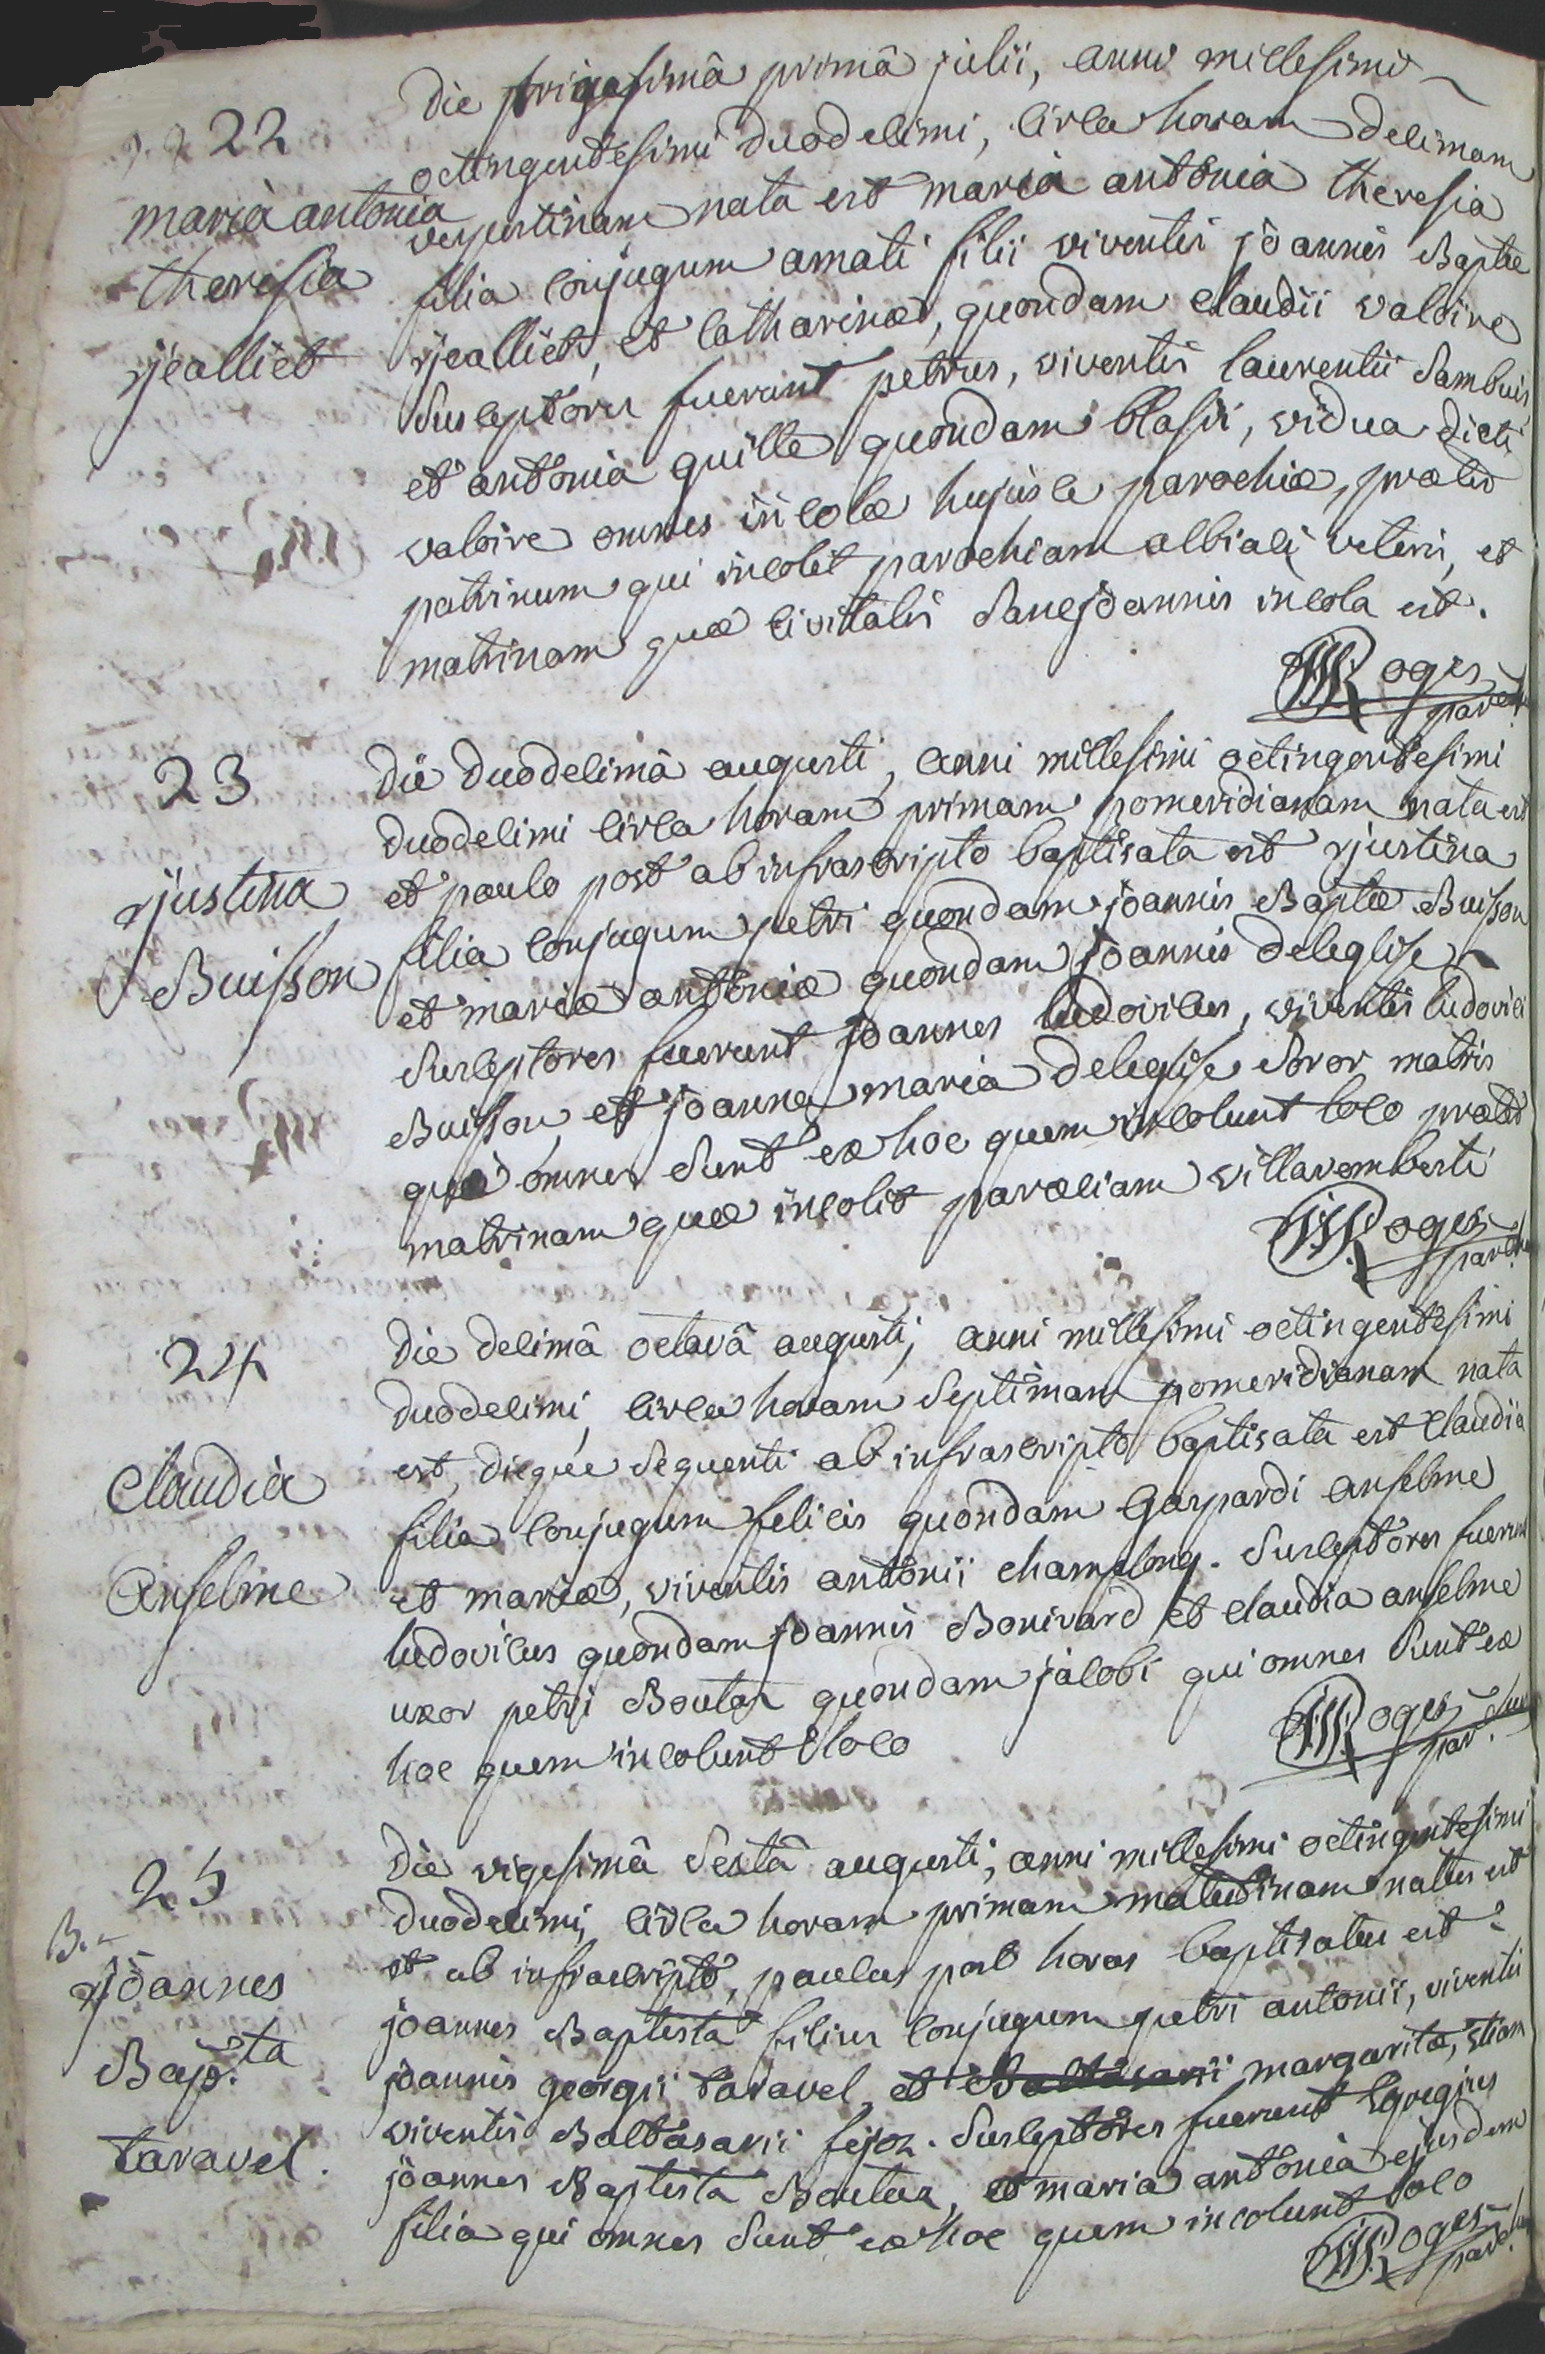 22
maria antonia
theresia
jealliet
Die trigesimâ primâ julii, anno millesimo
octingentesimi duodecimi, circa horam decimam
vespertinam nata est maria antonia theresia
filia conjugum amati filii viventis joannis Baptæ
jealliet, et catharinæ, quondam claudii valoire
Susceptores fuerunt petrus, viventis laurentii Sambuis,
et antonia quille quondam blasii, vidua dicti
valoire omnes incolæ hujusce parochiæ, præter
patrinum qui incolit parochiam albiali veteris, et
matrinam quæ civitatis Sancjoannis incola est.
Roges
par
23
justina
Buisson
Die duodecimâ augusti, anni millesimi octingentesimi
duodecimi circa horam primam pomeridianam nata est
et paulo post ab infrascripto baptisata est justina
filia conjugum petri quondam joannis Baptæ Buisson
et mariæ antoniæ quondam joannis deleglise
Susceptores fuerunt joannes ludovicus, viventis ludovici
Buisson, et joanna maria deleglise Soror matris
qui omnes Sunt ex hoc quem incolunt loco præter
matrinam quæ incolit paræciam villaremberti
Roges
par
24
Claudia
Anselme
Die decimâ octavâ augusti, anni millesimi octingentesimi
duodecimi, circa horam Septimam pomeridianam nata
est, dieque Sequenti ab infrascripto baptisata est Claudia
filia conjugum felicis quondam Gaspardi anselme
et mariæ, viventis antonii champlong. Susceptores fuerunt
ludovicus quondam joannis Bonivard et claudia anselme
uxor petri Boutaz quondam jacobi qui omnes Sunt ex
hoc quem incolunt loco
Roges
par.
25
B.
Joannes
Bap.ta
taravel.
Die vigesimâ Sextâ augusti, anni millesimi octingentesimi
duodecimi, circa horam primam matutinam natus est
et ab infrascripto, paulas post horas baptisatus est
joannes Baptista filius conjugum petri antonii, viventis
joannis georgii taravel, et Baltasarii margaritæ, etiam
viventis Baltasarii fejoz. Susceptores fuerunt Egregius
joannes Baptista Boutaz, et maria antonia ejusdem
filia qui omnes Sunt ex hoc quem incolunt loco
Roges
par.